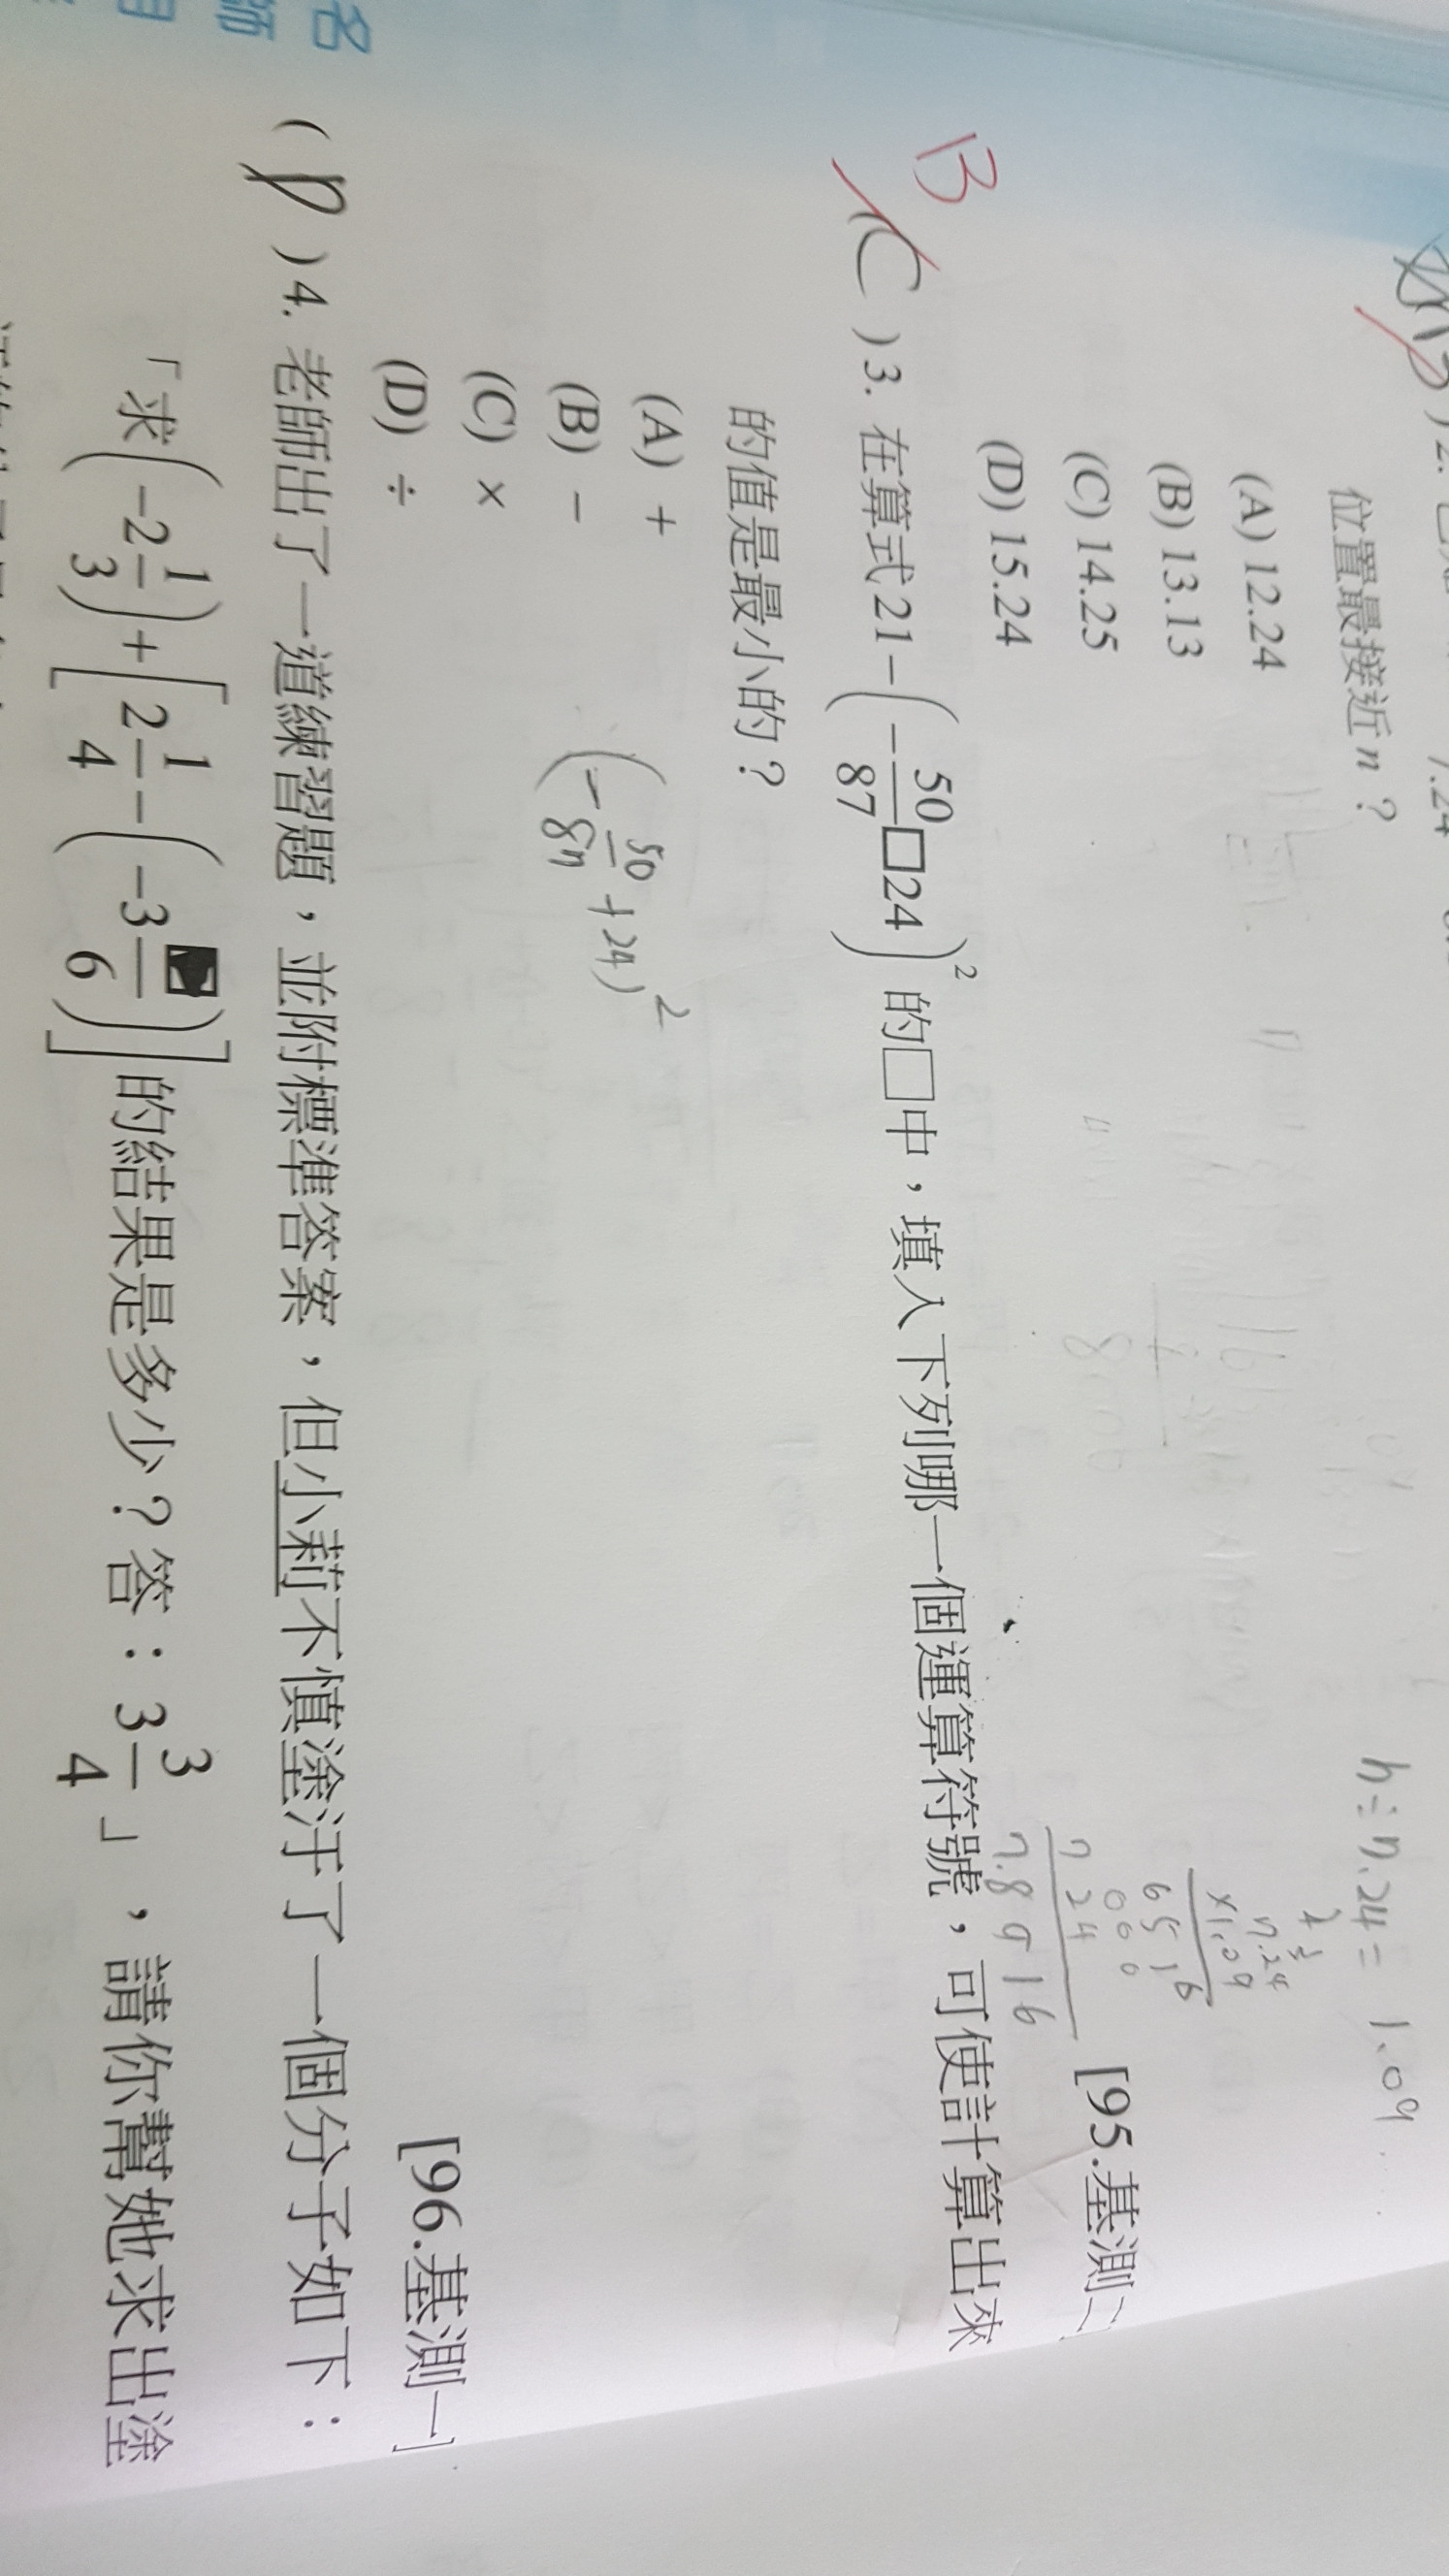 位置最接近n？
(A) 12.24
(B) 13.13
(C) 14.25
(D) 15.24
[95.基測二]
h÷7.24= 1.09
7.24
×1.09
6516
000
724
7.8916
B
(C)3. 在算式21－(－50/87□24)² 的□中，填入下列哪一個運算符號，可使計算出來
的值是最小的？
(A) ＋
(B) －
(C) ×
(D) ÷
(－50/87+24)²
[96.基測一]
(D)4. 老師出了一道練習題，並附標準答案，但小莉不慎塗汙了一個分子如下：
「求(－2 1/3)＋[2 1/4－(－3 ■/6)]的結果是多少？答：3 3/4」，請你幫她求出塗
名
師